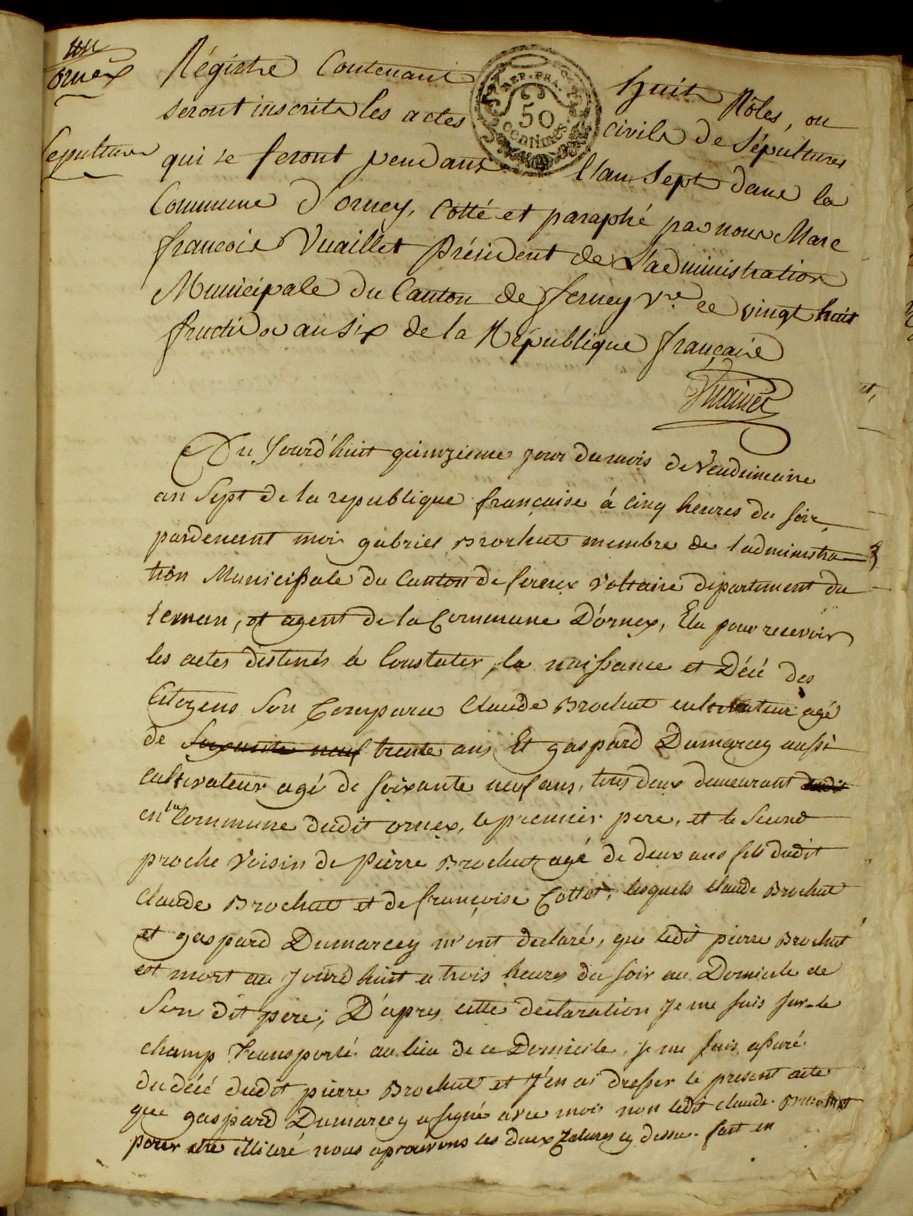 ornex
Sepulture
REP. FRA.
50
centimes
Régistre Contenant huit Rôles, ou
seront inscrits les actes civils de Sépultures
qui se feront pendant l'an Sept dans la
Commune d'ornex, cotté et paraphé par nous Marc
françois Vuaillet Président de l'administration
Municipale du Canton de ferney Vre ce vingt huit
fructidor an six de la République française
Vuaillet
Du Jourd'huit quinzieme jour du mois de Vendemiaire
an Sept de la republique francaise à cinq heures du soir
pardevent moi gabriel Brochut membre de l'administra
tion Municipale du Canton de fernex Voltaire département du
leman, et agent de la Commune D'ornex, Elu pour recevoir
les actes destinés à Constater, la naissance et Décé des
Citoyens Son Comparu Claude Brochut cultivateur agé
de soixante neuf trente ans Et gaspard Dumarcey aussi
cultivateur agé de soixante neuf ans, tous deux demeurant dudit
en la Commune dudit ornex, le premier pere, et le Second
proche Voisin de pierre Brochut agé de deux ans fils dudit
Claude Brochut et de françoise Collet, lesquels claude Brochut
et gaspard Dumarcey m'ont declaré, que ledit pierre Brochut
est mort au Jourd'huit a trois heures du soir au Domicile de
Son dit pere; D'apres cette déclaration Je me suis sur-le
champ transporté au lieu de ce Domicile, je me suis assuré
du décé dudit pierre Brochut et J'en ai dresser le present acte
que gaspard Dumarcey a signé avec moi non ledit claude Brochut
pour etre illitéré nous aprouvons les deux ratures cy dessu. fait en